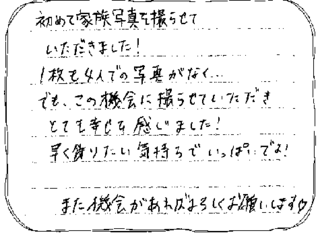 初めて家族写真を撮らせて
いただきました！
1枚も4人での写真がなく…
でも、この機会に撮らせていただき
とても幸せを感じました！
早く飾りたい気持ちでいっぱいです！
また機会があればよろしくお願いします